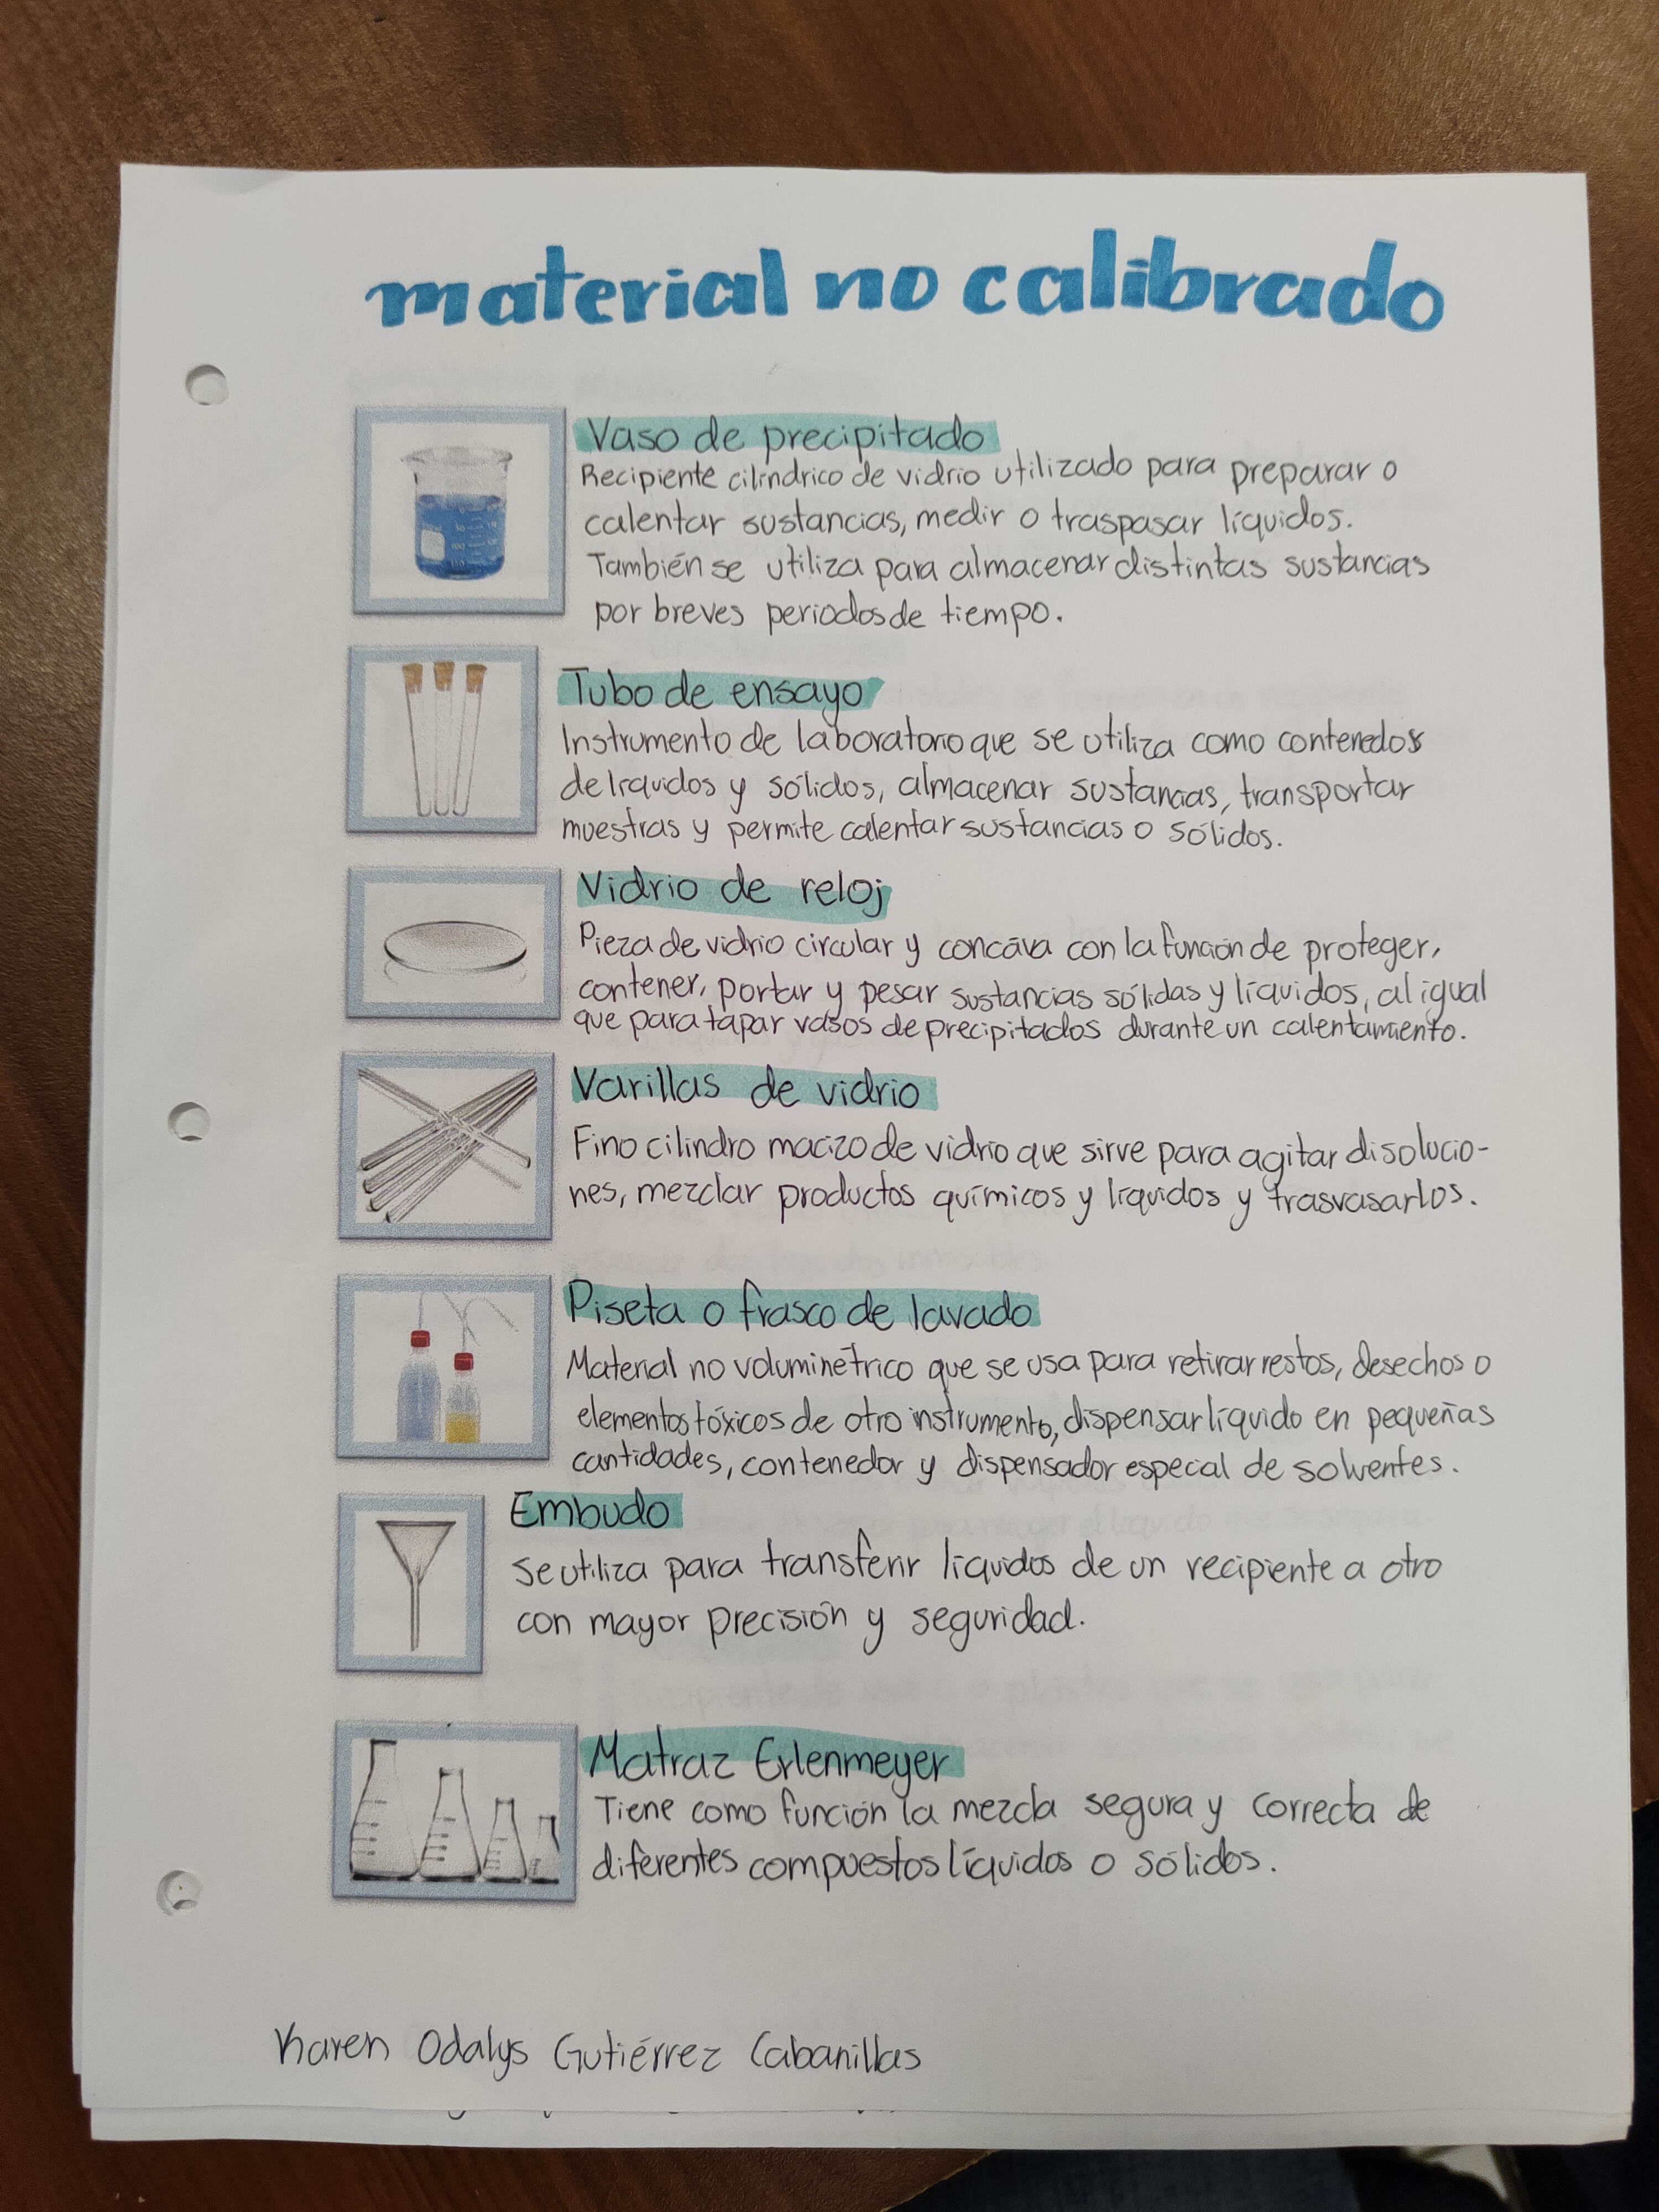 material no calibrado
Vaso de precipitado
Recipiente cilíndrico de vidrio utilizado para preparar o
calentar sustancias, medir o traspasar líquidos.
También se utiliza para almacenar distintas sustancias
por breves periodos de tiempo.
Tubo de ensayo
Instrumento de laboratorio que se utiliza como contenedos
de líquidos y sólidos, almacenar sustancias, transportar
muestras y permite calentar sustancias o sólidos.
Vidrio de reloj
Pieza de vidrio circular y concáva con la función de proteger,
contener, portar y pesar sustancias sólidas y líquidos, al igual
que para tapar vasos de precipitados durante un calentamiento.
Varillas de vidrio
Fino cilindro macizo de vidrio que sirve para agitar disolucio-
nes, mezclar productos químicos y líquidos y trasvasarlos.
Piseta o frasco de lavado
Material no voluminétrico que se usa para retirar restos, desechos o
elementos tóxicos de otro instrumento, dispensar líquido en pequeñas
cantidades, contenedor y dispensador especial de solventes.
Embudo
Se utiliza para transferir líquidos de un recipiente a otro
con mayor precisión y seguridad.
Matraz Erlenmeyer
Tiene como función la mezcla segura y correcta de
diferentes compuestos líquidos o sólidos.
Karen Odalys Gutiérrez Cabanillas